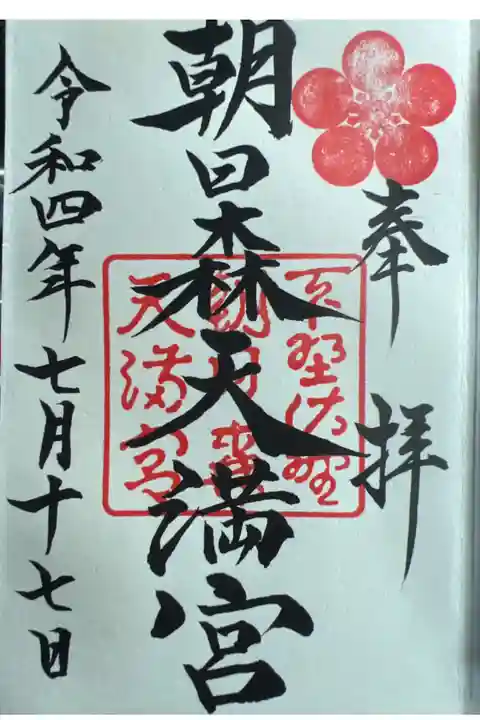 奉拝
朝日森天満宮
下野佐野
朝日森
天満宮
令和四年七月十七日